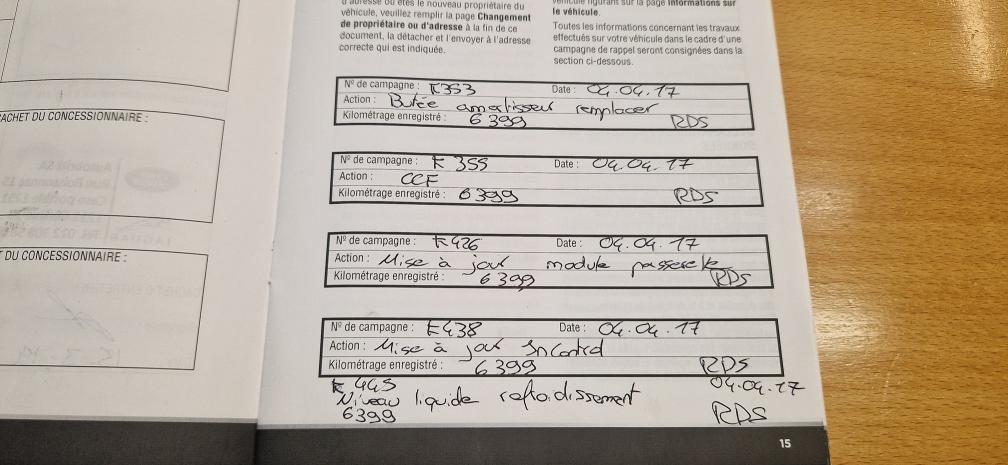 d'adresse ou êtes le nouveau propriétaire du
véhicule, veuillez remplir la page Changement
de propriétaire ou d'adresse à la fin de ce
document, la détacher et l'envoyer à l'adresse
correcte qui est indiquée.
véhicule figurant sur la page Informations sur
le véhicule.
Toutes les informations concernant les travaux
effectués sur votre véhicule dans le cadre d'une
campagne de rappel seront consignées dans la
section ci-dessous.
CACHET DU CONCESSIONNAIRE :
DU CONCESSIONNAIRE :
Nº de campagne : K353 Date : 04.04.17
Action : Butée amortisseur remplacer
Kilométrage enregistré : 6399 RDS
Nº de campagne : K355 Date : 04.04.17
Action : CCF
Kilométrage enregistré : 6399 RDS
Nº de campagne : K426 Date : 04.04.17
Action : Mise à jour module passerelle
Kilométrage enregistré : 6399 RDS
Nº de campagne : K438 Date : 04.04.17
Action : Mise à jour InControl
Kilométrage enregistré : 6399 RDS
K445 04.04.17
Niveau liquide refroidissement
6399 RDS
15